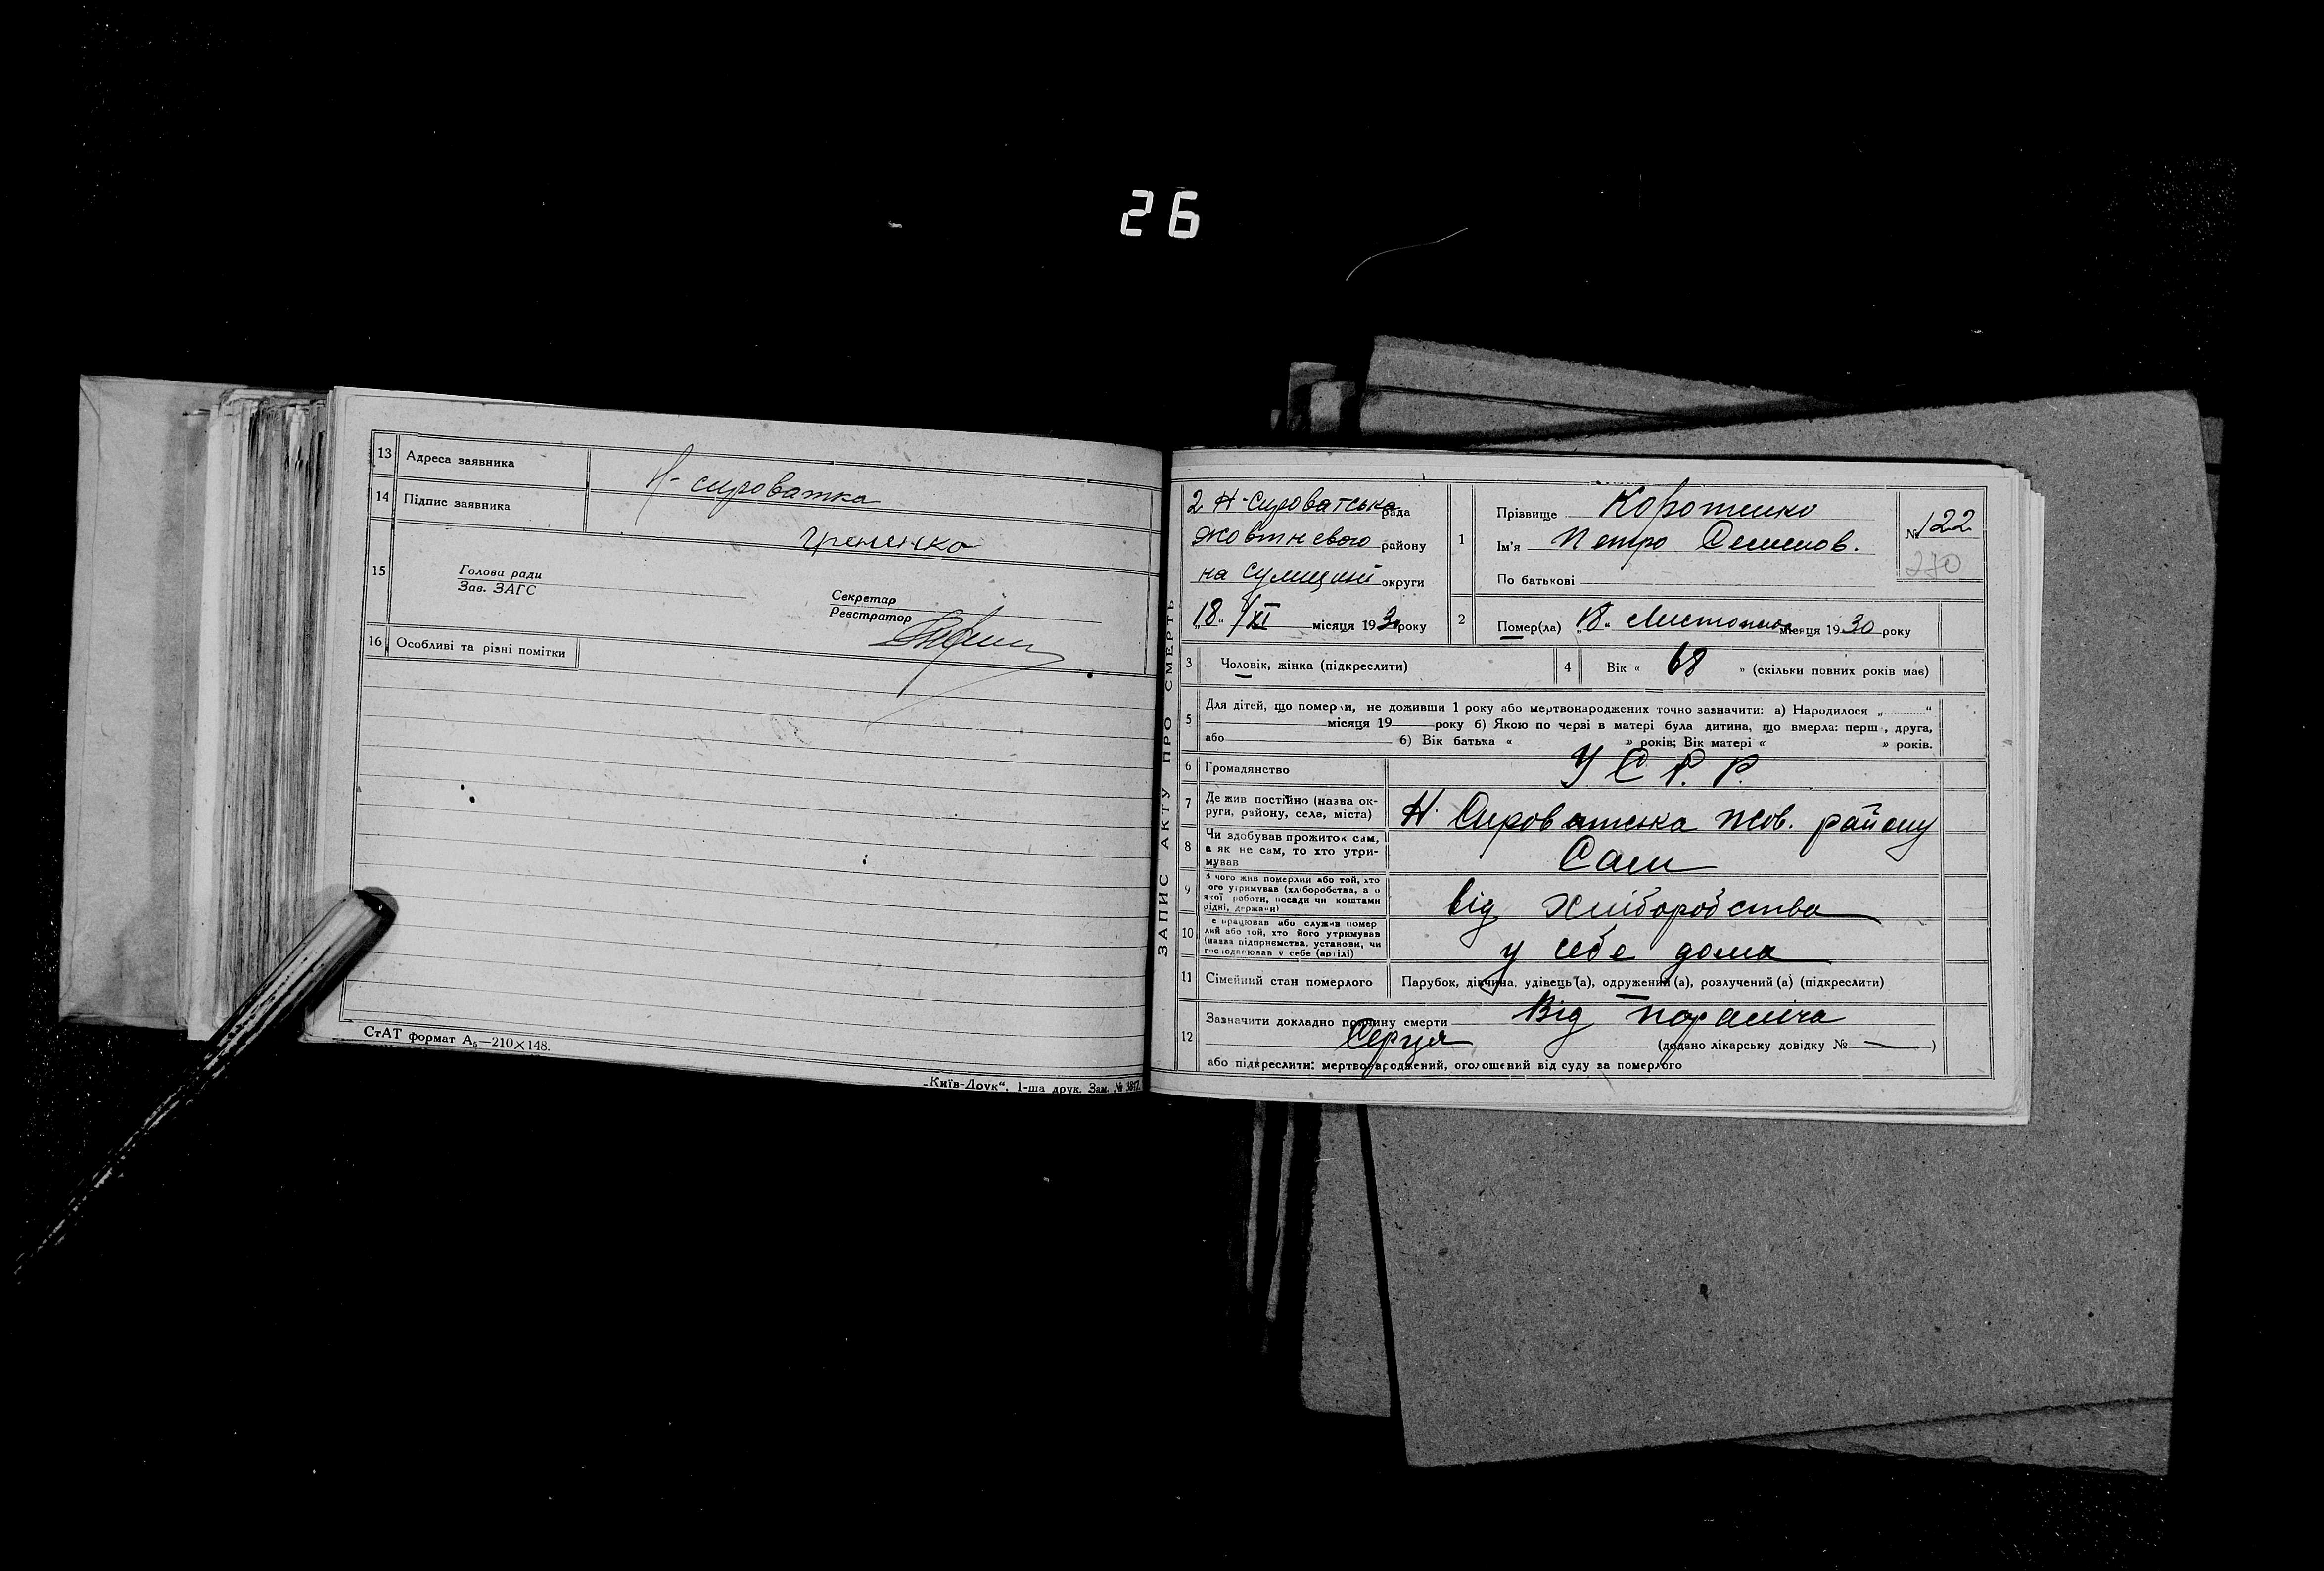 26
13 Адреса заявника Н-сироватка
14 Підпис заявника Гриненко
15 Голова ради
Зав. ЗАГС
Секретар
Реєстратор
16 Особливі та різні помітки
СтАТ формат А₅—210×148.
„Київ-Друк“, 1-ша друк. Зам. № 3817.
ЗАПИС АКТУ ПРО СМЕРТЬ
2 Н-Сироватська рада
Жовтневого району
на Сумщині округи
„18“ XI місяця 1930 року
1 Прізвище Коротенко
Ім'я Петро Семенов.
По батькові
№ 122
270
2 Помер(ла) „18“ Листопада місяця 1930 року
3 Чоловік, жінка (підкреслити)
4 Вік « 68 » (скільки повних років має)
5 Для дітей, що померли, не доживши 1 року або мертвонароджених точно зазначити: а) Народилося „ “
місяця 19 року б) Якою по черзі в матері була дитина, що вмерла: перша, друга,
або б) Вік батька « » років; Вік матері « » років.
6 Громадянство У С Р. Р.
7 Де жив постійно (назва округи, району, села, міста) Н. Сироватська Жов. району
8 Чи здобував прожиток сам, а як не сам, то хто утримував Сам
9 З чого жив померлий або той, хто його утримував (хліборобства, а о якої роботи, посади чи коштами рідні, держави) від хліборобства
10 Де працював або служив помер лий або той, хто його утримував (назва підприємства, установи, чи господарював у себе (артілі) у себе дома
11 Сімейний стан померлого Парубок, дівчина, удівець (а), одружений (а), розлучений (а) (підкреслити)
12 Зазначити докладно причину смерти Від параліча
Серця (додано лікарську довідку № — )
або підкреслити: мертвонароджений, оголошений від суду за померлого